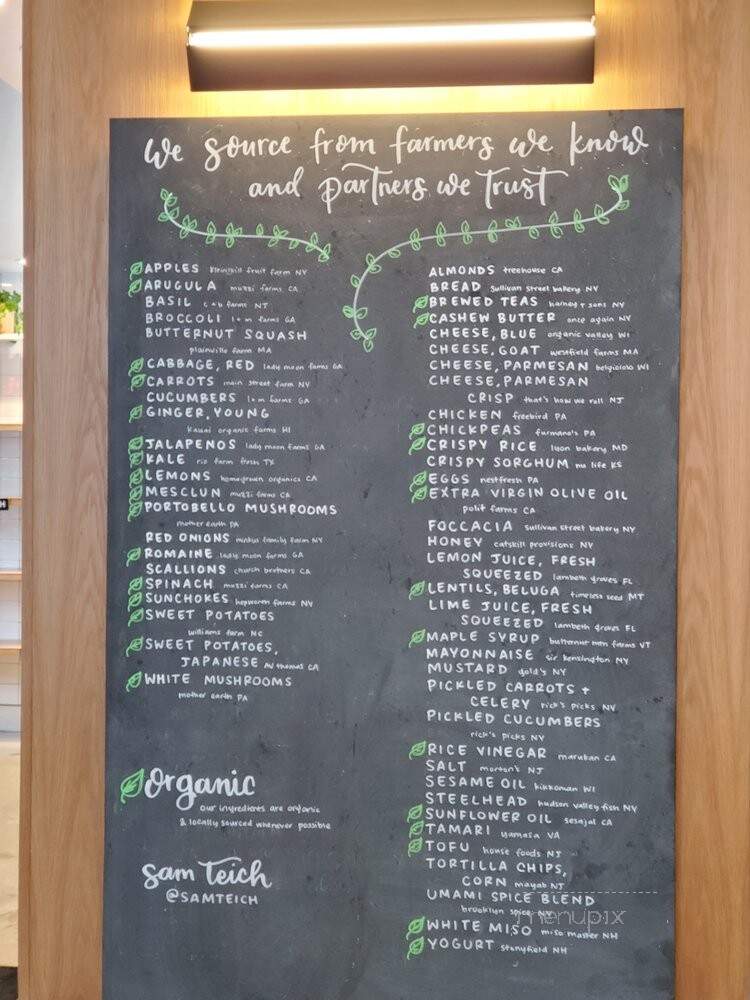 we source from farmers we know
and partners we trust
APPLES kleinskill fruit farm NY
ARUGULA muzzi farms CA
BASIL c+b farms NJ
BROCCOLI l+m farms GA
BUTTERNUT SQUASH
plainville farm MA
CABBAGE, RED lady moon farms GA
CARROTS main street farm NY
CUCUMBERS l+m farms GA
GINGER, YOUNG
kauai organic farms HI
JALAPENOS lady moon farms GA
KALE rio farm fresh TX
LEMONS homegrown organics CA
MESCLUN muzzi farms CA
PORTOBELLO MUSHROOMS
mother earth PA
RED ONIONS minkus family farm NY
ROMAINE lady moon farms GA
SCALLIONS church brothers CA
SPINACH muzzi farms CA
SUNCHOKES hepworth farms NY
SWEET POTATOES
williams farm NC
SWEET POTATOES,
JAPANESE AV thomas CA
WHITE MUSHROOMS
mother earth PA
organic
our ingredients are organic
& locally sourced whenever possible
sam teich
@SAMTEICH
ALMONDS treehouse CA
BREAD sullivan street bakery NY
BREWED TEAS harney + sons NY
CASHEW BUTTER once again NY
CHEESE, BLUE organic valley WI
CHEESE, GOAT westfield farms MA
CHEESE, PARMESAN belgioioso WI
CHEESE, PARMESAN
CRISP that's how we roll NJ
CHICKEN freebird PA
CHICKPEAS furmano's PA
CRISPY RICE lyon bakery MD
CRISPY SORGHUM nu life KS
EGGS nestfresh PA
EXTRA VIRGIN OLIVE OIL
polit farms CA
FOCCACIA sullivan street bakery NY
HONEY catskill provisions NY
LEMON JUICE, FRESH
SQUEEZED lambeth groves FL
LENTILS, BELUGA timeless seed MT
LIME JUICE, FRESH
SQUEEZED lambeth groves FL
MAPLE SYRUP butternut mtn farms VT
MAYONNAISE sir kensington NY
MUSTARD gold's NY
PICKLED CARROTS +
CELERY rick's picks NY
PICKLED CUCUMBERS
rick's picks NY
RICE VINEGAR marukan CA
SALT morton's NJ
SESAME OIL kikkoman WI
STEELHEAD hudson valley fish NY
SUNFLOWER OIL sesajal CA
TAMARI yamasa VA
TOFU house foods NJ
TORTILLA CHIPS,
CORN mayab NJ
UMAMI SPICE BLEND
brooklyn spice NY
menupix
WHITE MISO miso master NH
YOGURT stonyfield NH